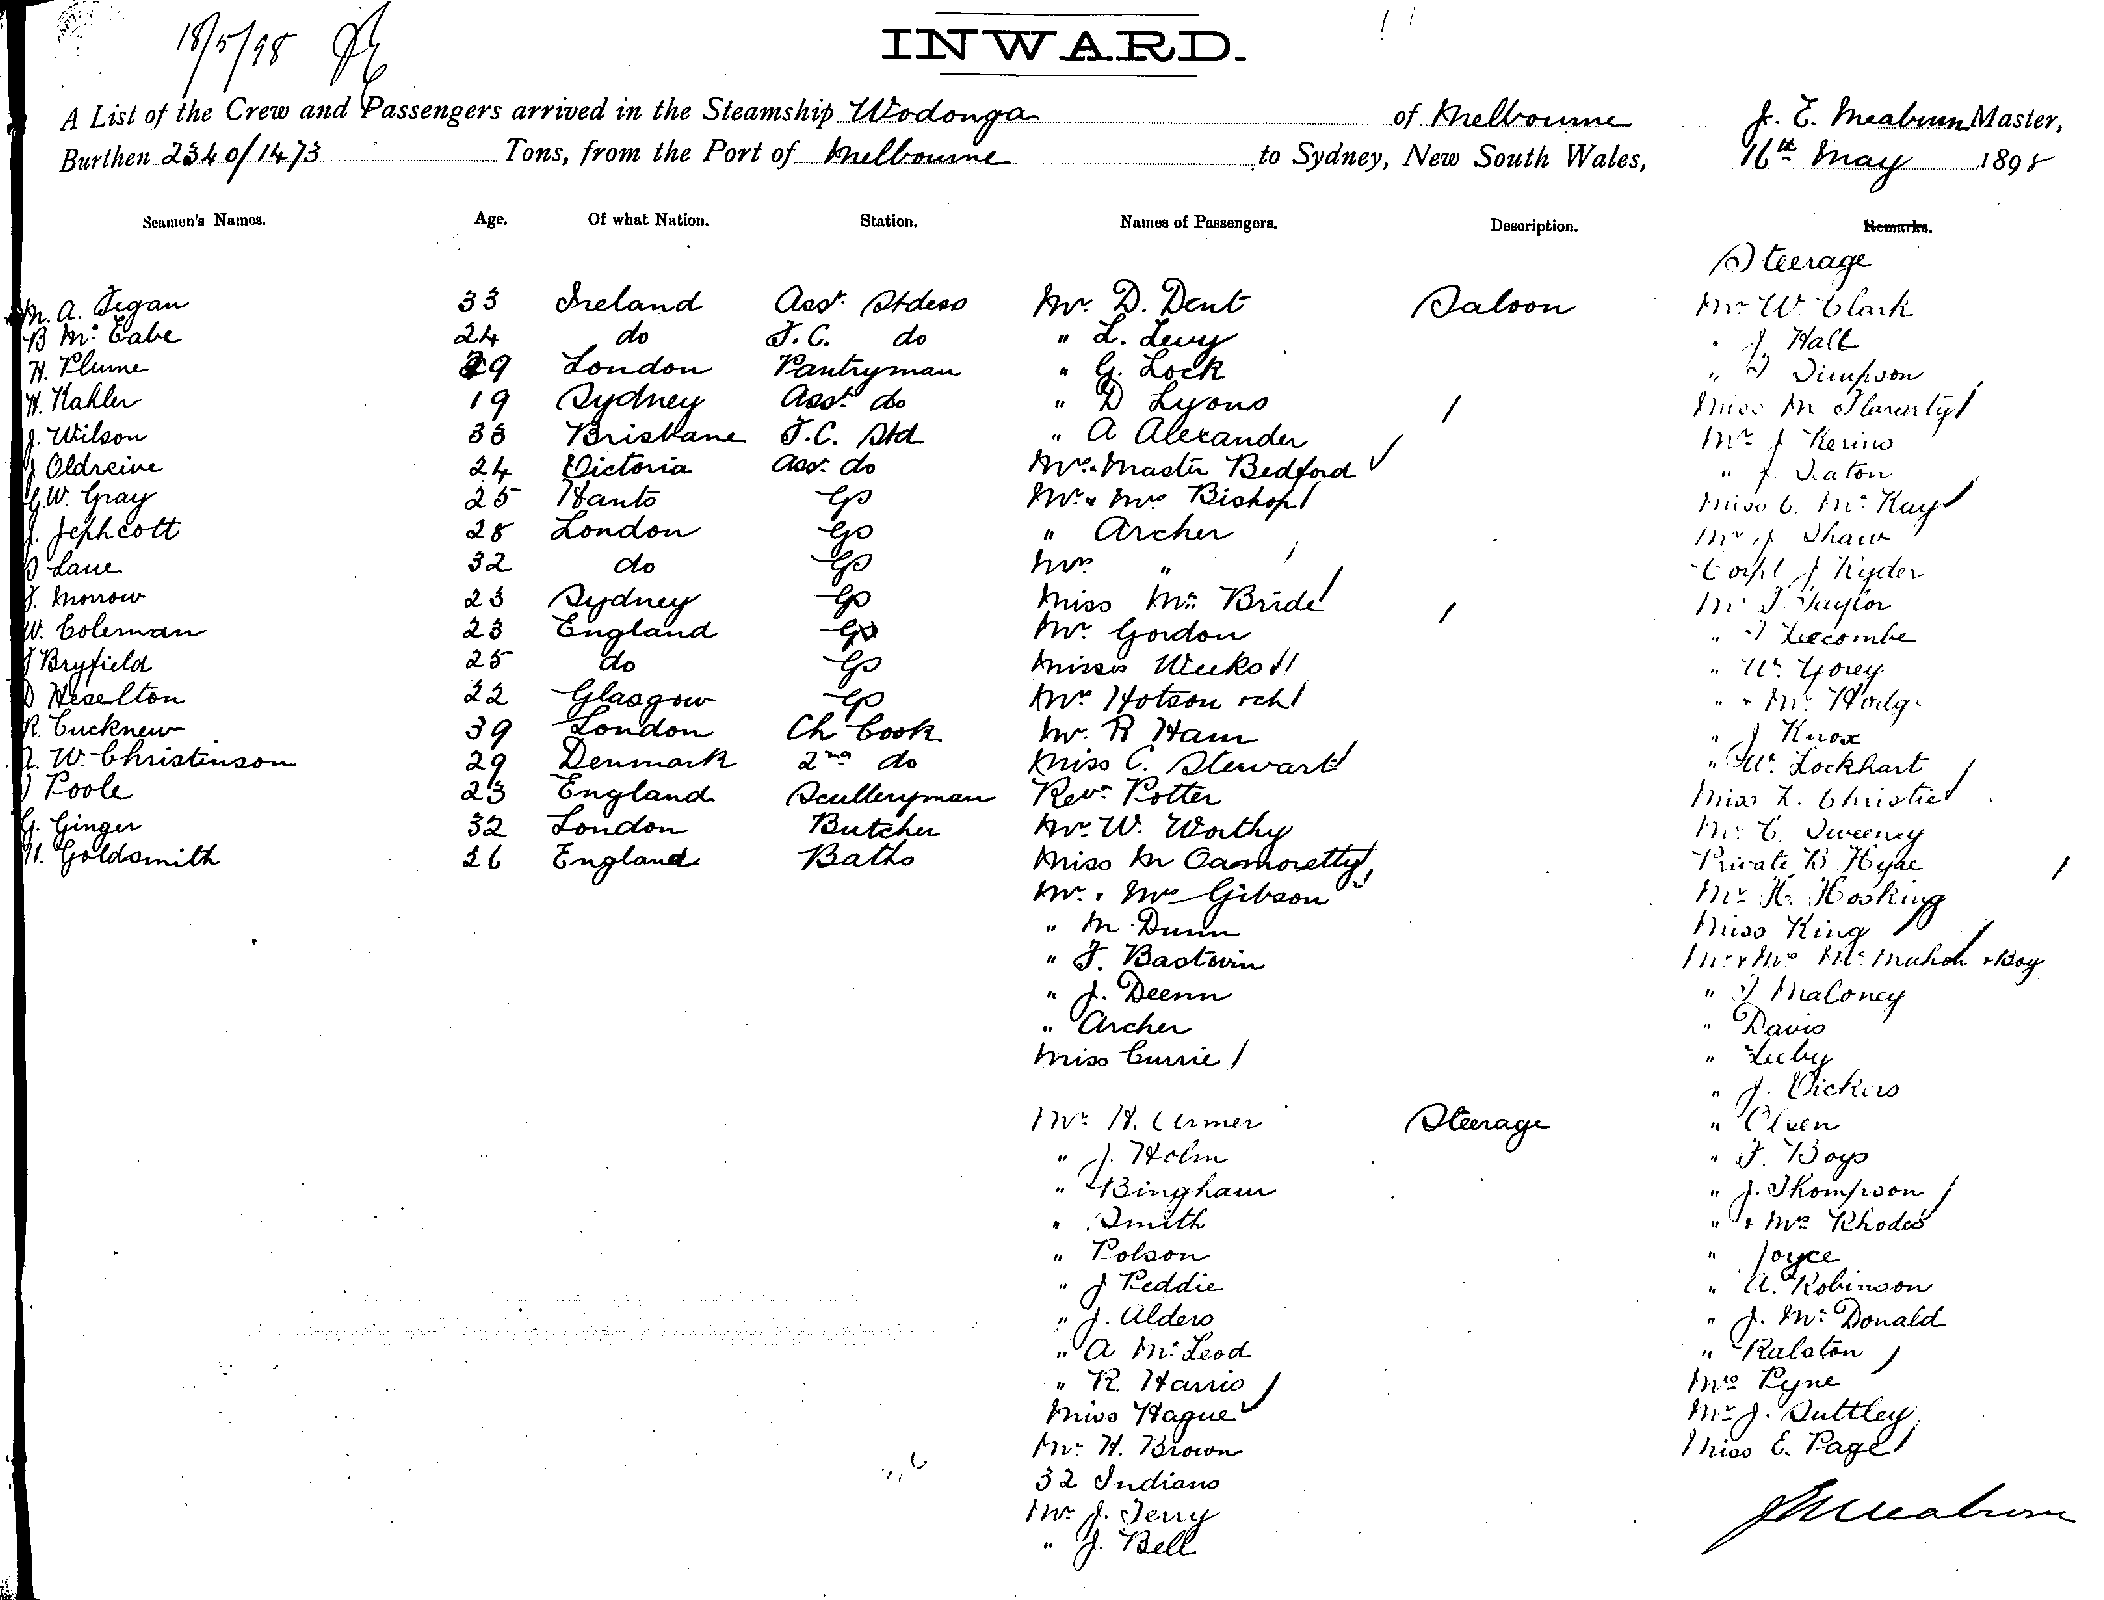 18/5/98
INWARD.
A List of the Crew and Passengers arrived in the Steamship Wodonga of Melbourne J. E. Meaburn Master,
Burthen 2340/1473 Tons, from the Port of Melbourne to Sydney, New South Wales, 16th May 1898
Seamen's Names. Age. Of what Nation. Station. Names of Passengers. Description. Remarks.
Steerage
M. A. Fegan 33 Ireland Asst. Stdess Mr. D. Dent Saloon Mr W. Clark
B Mc Cabe 24 do F.C. do " L. Levy " J Hall
H. Plume 29 London Pantryman " G. Lock " Simpson
H. Kahler 19 Sydney Asst. do " D Lyons Miss M Flaverty
J. Wilson 33 Brisbane F.C. Std " A Alexander Mr J Kerins
J Oldreive 24 Victoria Asst. do Mrs. Master Bedford " J. Eaton
G.W. Gray 25 Hants Gs Mr & Mrs Bishop Miss C. McKay
J. Jephcott 28 London Gs " Archer Mr J Shaw
Lane 32 do Gs Mrs " Corpl J Ryder
F. Morrow 23 Sydney Gs Miss Mc Bride Mr Taylor
W. Coleman 23 England Gs Mr. Gordon " Leecombe
Bryfield 25 do Gs Misses Weeks " W. Gorey
D Heselton 22 Glasgow Gs Mrs Hotson & ch " & Mrs Hodge
R. Cucknew 39 London Ch Cook Mr. R Ham " J Knox
A. W. Christinson 29 Denmark 2nd do Miss C. Stewart " W. Lockhart
Poole 23 England Sculleryman Revd Potter Miss L. Christie
G. Ginger 32 London Butcher Mr. W. Worthy Mr C. Sweeney
H. Goldsmith 26 England Baths Miss M Camoretty Private B Hyde
Mr. & Mrs Gibson Mr H. Hosking
" M. Dunn Miss King
" F. Bastwin Mr & Mrs McMahon & Boy
" J. Deenn " Maloney
" Archer " Davis
Miss Currie " Leeby
" J. Vickers
Mr H. Armer Steerage " Olsen
" J. Holm " F. Boys
" Bingham " J. Thompson
" Smith " & Mrs Rhodes
" Polson " Joyce
" J Peddie " A. Robinson
" J. Alders " J. McDonald
" A McLeod " Ralston
" R. Harris Mrs Pyne
Miss Hague Mr J. Suttley
Mr H. Brown Miss E. Page
32 Indians
Mr J. Terry J E Meaburn
" J. Bell